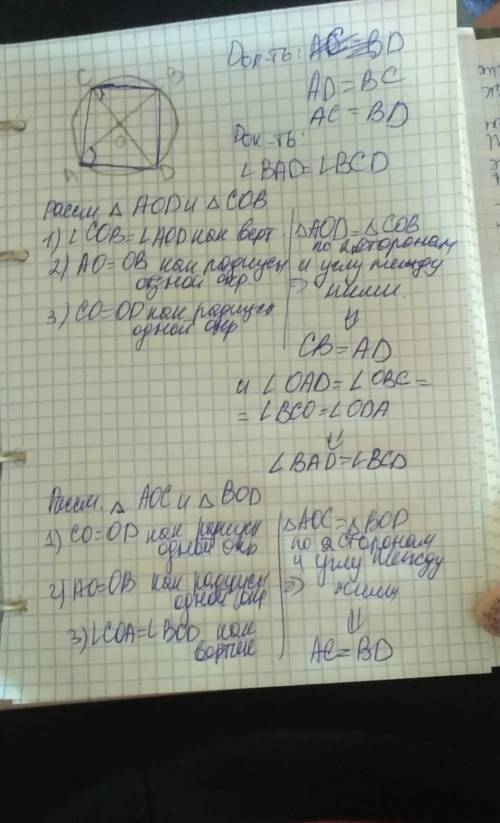 Док-ть:
AD = BC
AC = BD
Док-ть:
∠BAD = ∠BCD
C B
O
A D
Рассм. △ AOD и △ COB
1) ∠COB = ∠AOD как верт.
2) AO = OB как радиусы
одной окр
3) CO = OD как радиусы
одной окр
△AOD = △COB
по 2 сторонам
и углу между
⇒ ними.
⇓
CB = AD
и ∠OAD = ∠OBC =
= ∠BCO = ∠ODA
⇓
∠BAD = ∠BCD
Рассм. △ AOC и △ BOD
1) CO = OD как радиусы
одной окр
2) AO = OB как радиусы
одной окр
3) ∠COA = ∠BOD как
△AOC = △BOD
по 2 сторонам
и углу между
⇒ ними
⇓
AC = BD